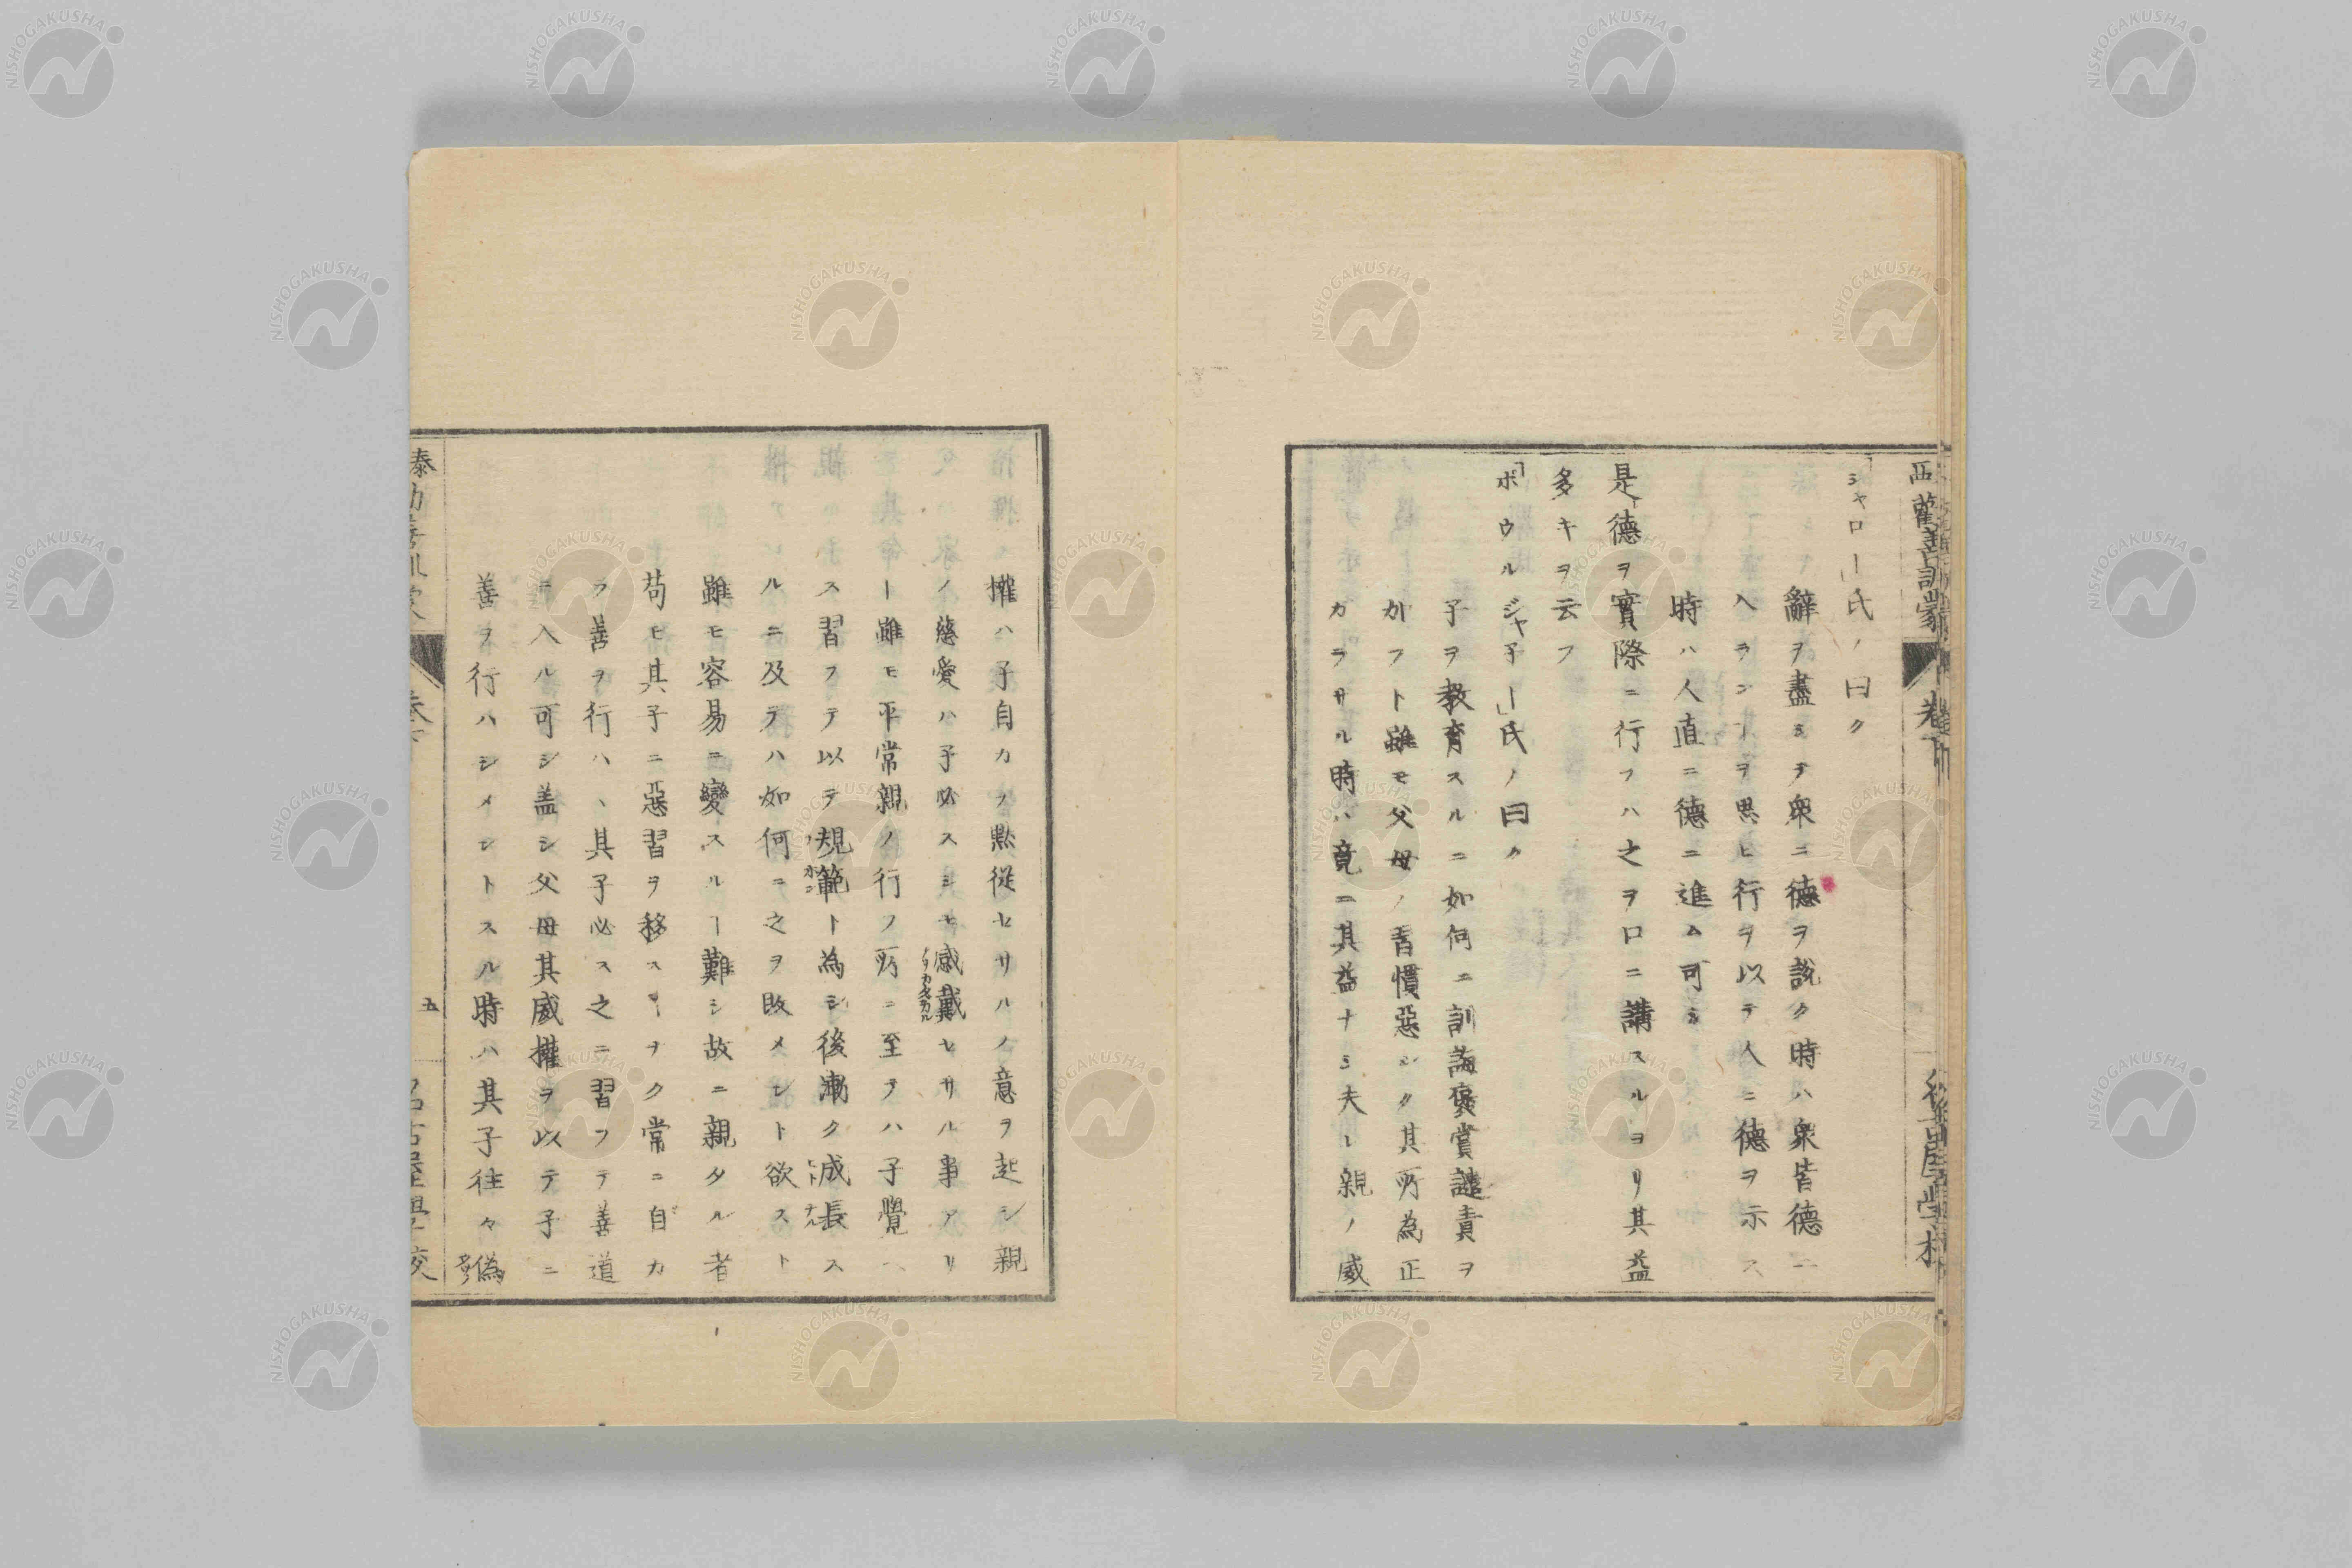 「シャロー」氏ノ曰ク
辭ヲ盡シテ衆ニ德ヲ說ク時ハ衆皆德ニ
入ランヿヲ思ヒ行ヲ以テ人ニ德ヲ示ス
時ハ人直ニ德ニ進ム可シ
是レ德ヲ實際ニ行フハ之ヲ口ニ講スルヨリ其益
多キヲ云フ
「ボウルジャ子ー」氏ノ曰ク
子ヲ教育スルニ如何ニ訓誨褒賞譴責ヲ
加フト雖モ父母ノ習慣惡シク其所為正
カラサル時ハ竟ニ其益ナシ夫レ親ノ威
權ハ子自カラ黙從セサルノ意ヲ起シ親
ノ慈愛ハ子必スシモ感戴セサル事アリ
ト雖モ平常親ノ行フ所ニ至テハ子覺ヘ
ス習フテ以テ規範ト為シ後漸ク成長ス
ルニ及テハ如何ニ之ヲ改メント欲スト
雖モ容易ニ變スルヿ難シ故ニ親タル者
苟モ其子ニ惡習ヲ移スヿナク常ニ自カ
ラ善ヲ行ハヽ其子必ス之ニ習フテ善道
ニ入ル可シ盖シ父母其威權ヲ以テ子ニ
善ヲ行ハシメントスル時ハ其子往々偽
五
NISHOGAKUSHA